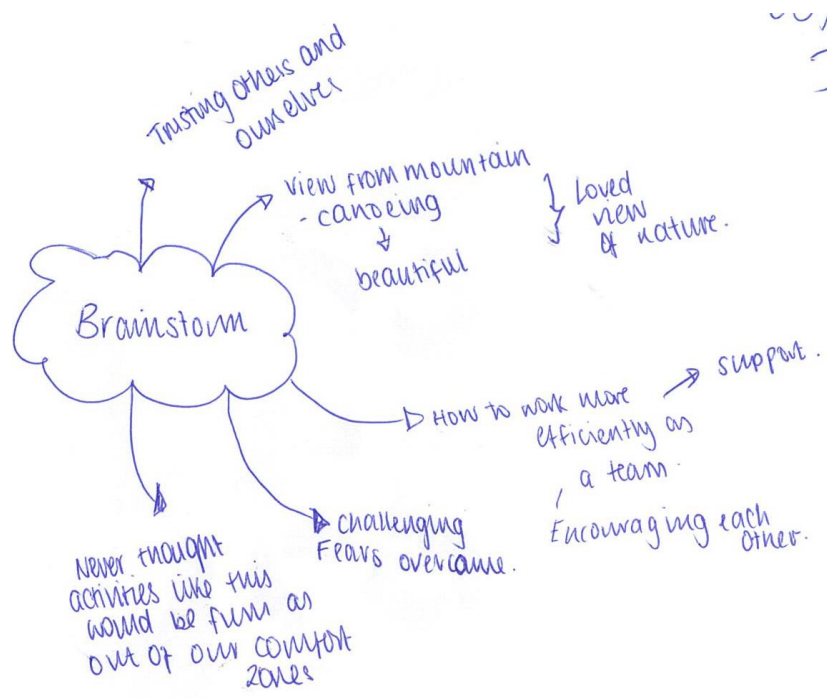 Trusting others and
ourselves
View from mountain
- canoeing
beautiful
Loved
view
of nature.
Brainstorm
How to work more
efficiently as
a team.
support.
Encouraging each
other.
challenging
Fears overcame.
Never thought
activities like this
would be funn as
out of our comfort
zones